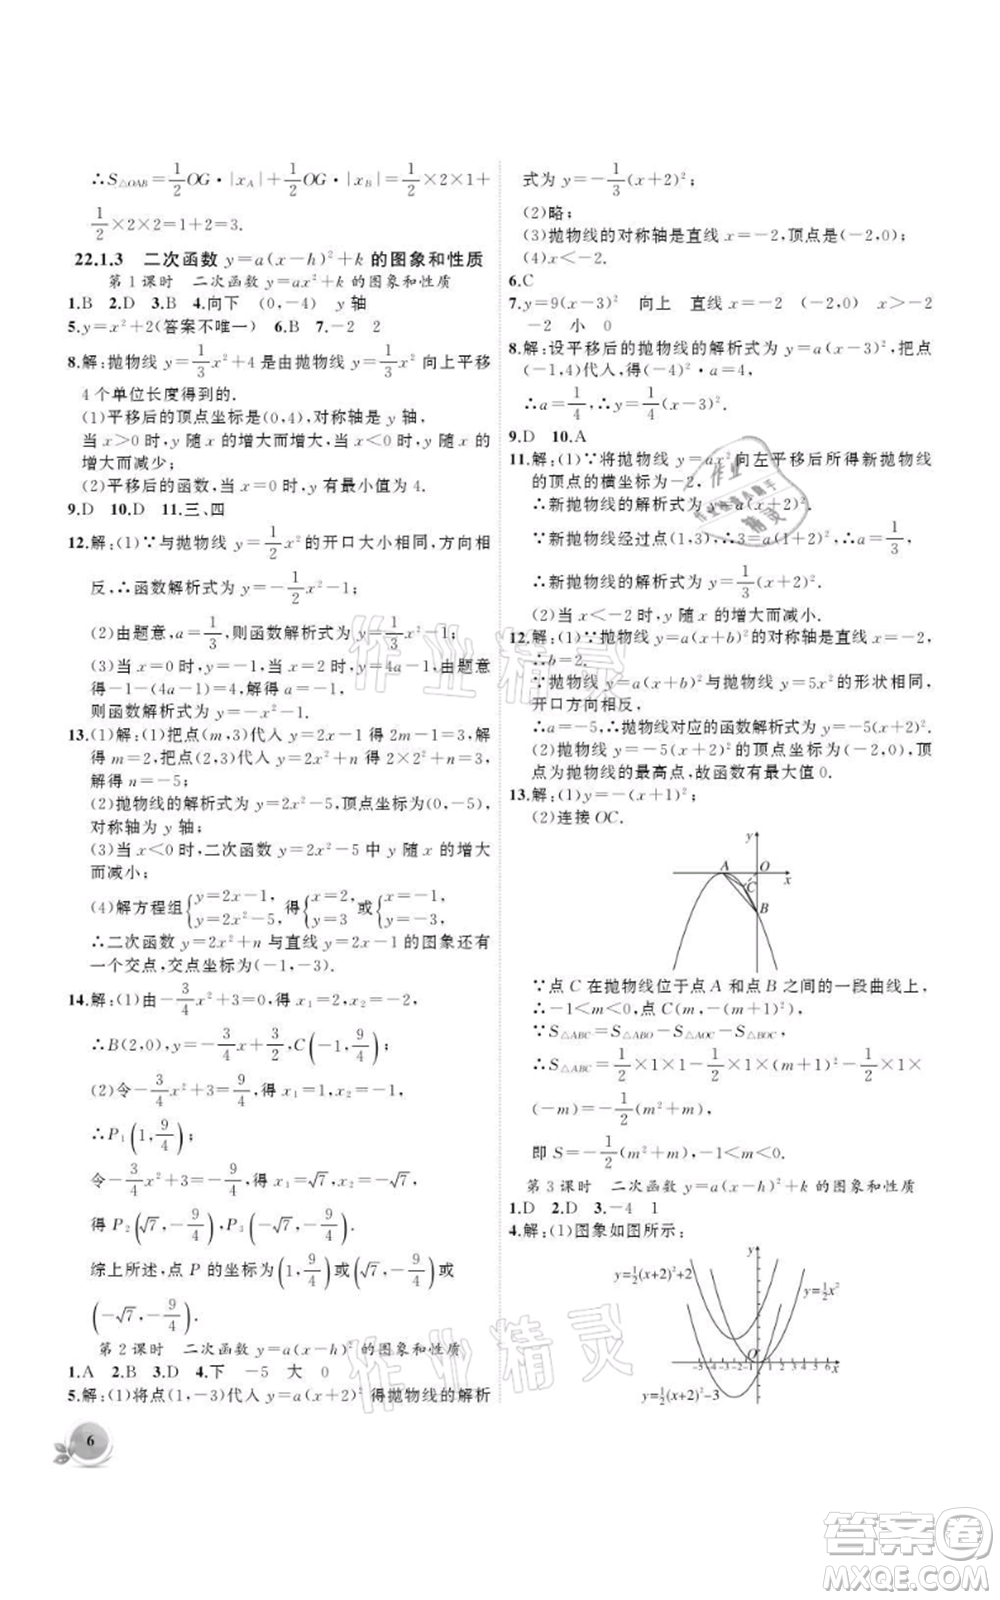 ∴S△OAB=1/2OG·|xA|+1/2OG·|xB|=1/2×2×1+
1/2×2×2=1+2=3.
22.1.3 二次函数 y=a(x-h)²+k 的图象和性质
第1课时 二次函数 y=ax²+k 的图象和性质
1.B 2.D 3.B 4.向下 (0,-4) y 轴
5.y=x²+2(答案不唯一) 6.B 7.-2 2
8.解:抛物线 y=1/3x²+4 是由抛物线 y=1/3x² 向上平移
4 个单位长度得到的.
(1)平移后的顶点坐标是(0,4),对称轴是 y 轴,
当 x>0 时,y 随 x 的增大而增大,当 x<0 时,y 随 x 的
增大而减少;
(2)平移后的函数,当 x=0 时,y 有最小值,最小值为 4.
9.D 10.D 11.三、四
12.解:(1)∵与抛物线 y=1/2x² 的开口大小相同,方向相
反,∴函数解析式为 y=-1/2x²-1;
(2)由题意,a=1/3,则函数解析式为 y=1/3x²-1;
(3)当 x=1 时,y=a-1,当 x=2 时,y=4a-1,由题意
得-1-(4a-1)=4,解得 a=-1.
则函数解析式为 y=-x²-1.
13.(1)解:(1)把点(m,3)代人 y=2x-1 得 2m-1=3,解
得 m=2,把点(2,3)代人 y=2x²+n 得 2×2²+n=3,
解得 n=-5;
(2)抛物线的解析式为 y=2x²-5,顶点坐标为(0,-5),
对称轴为 y 轴;
(3)当 x<0 时,二次函数 y=2x²-5 中 y 随 x 的增大
而减小;
(4)解方程组{y=2x-1, y=2x²-5, 得{x=2, y=3 或{x=-1, y=-3,
∴二次函数 y=2x²+n 与直线 y=2x-1 的图象还有
一个交点,交点坐标为(-1,-3).
14.解:(1)由-3/4x²+3=0,得 x=2,或 x=-2,
∴B(2,0),y=-3/4x+3/2,C(-1,9/4);
(2)令-3/4x²+3=9/4,得 x₁=1,x₂=-1,
∴P₁(1,9/4);
令-3/4x²+3=-9/4,得 x₁=√7,x₂=-√7,
得 P₂(√7,-9/4),P₃(-√7,-9/4).
综上所述,点 P 的坐标为(1,9/4)或(√7,-9/4)或
(-√7,-9/4).
第2课时 二次函数 y=a(x-h)² 的图象和性质
1.A 2.B 3.D 4.下 -5 大 0
5.解:(1)将点(1,-3)代人 y=a(x+2)² 得抛物线的解析
6
式为 y=-1/3(x+2)²;
(2)略;
(3)抛物线的对称轴是直线 x=-2,顶点是(-2,0);
(4)x<-2.
6.C
7.y=9(x-3)² 向上 直线 x=-2 (-2,0) x>-2
-2 小 0
8.解:设平移后的抛物线的解析式为 y=a(x-3)²,把点
(-1,4)代人,得(-4)²·a=4,
∴a=1/4,∴y=1/4(x-3)².
9.D 10.A
11.解:(1)∵将抛物线 y=ax² 向左平移后所得新抛物线
的顶点的横坐标为-2,
∴新抛物线的解析式为 y=a(x+2)²,
∵新抛物线经过点(1,3),∴3=9a,∴a=1/3,
∴新抛物线的解析式为 y=1/3(x+2)².
(2)当 x<-2 时,y 随 x 的增大而减小.
12.解:(1)∵抛物线 y=a(x+b)² 的对称轴是直线 x=-2,
∴b=2.
∵抛物线 y=a(x+b)² 与抛物线 y=5x² 的形状相同,
开口方向相反,
∴a=-5,∴抛物线对应的函数解析式为 y=-5(x+2)².
(2)抛物线 y=-5(x+2)² 的顶点坐标为(-2,0),顶
点为抛物线的最高点,故函数有最大值 0.
13.解:(1)y=-(x+1)²;
(2)连接 OC.
y
A O
x
C
B
∵点 C 在抛物线位于点 A 和点 B 之间的一段曲线上,
∴-1<m<0,点 C(m,-(m+1)²),
∵S△ABC=S△ABO-S△AOC-S△BOC,
∴S△ABC=1/2×1×1-1/2×1×(m+1)²-1/2×1×
(-m)=-1/2(m²+m),
即 S=-1/2(m²+m),-1<m<0.
第3课时 二次函数 y=a(x-h)²+k 的图象和性质
1.D 2.D 3.-4 1
4.解:(1)图象如图所示;
y
y=1/2(x+2)²+2
y=1/2x²
-5-4-3-2-1O 1 2 3 4 5 6 x
y=1/2(x+2)²-3
作业精灵
作业精灵
作业
精灵
答案卷
MXQE.COM